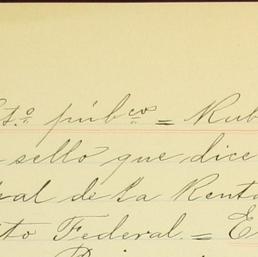 st.º púb.cos = Rub
sello que dice
ral de la Renta
ito Federal = E